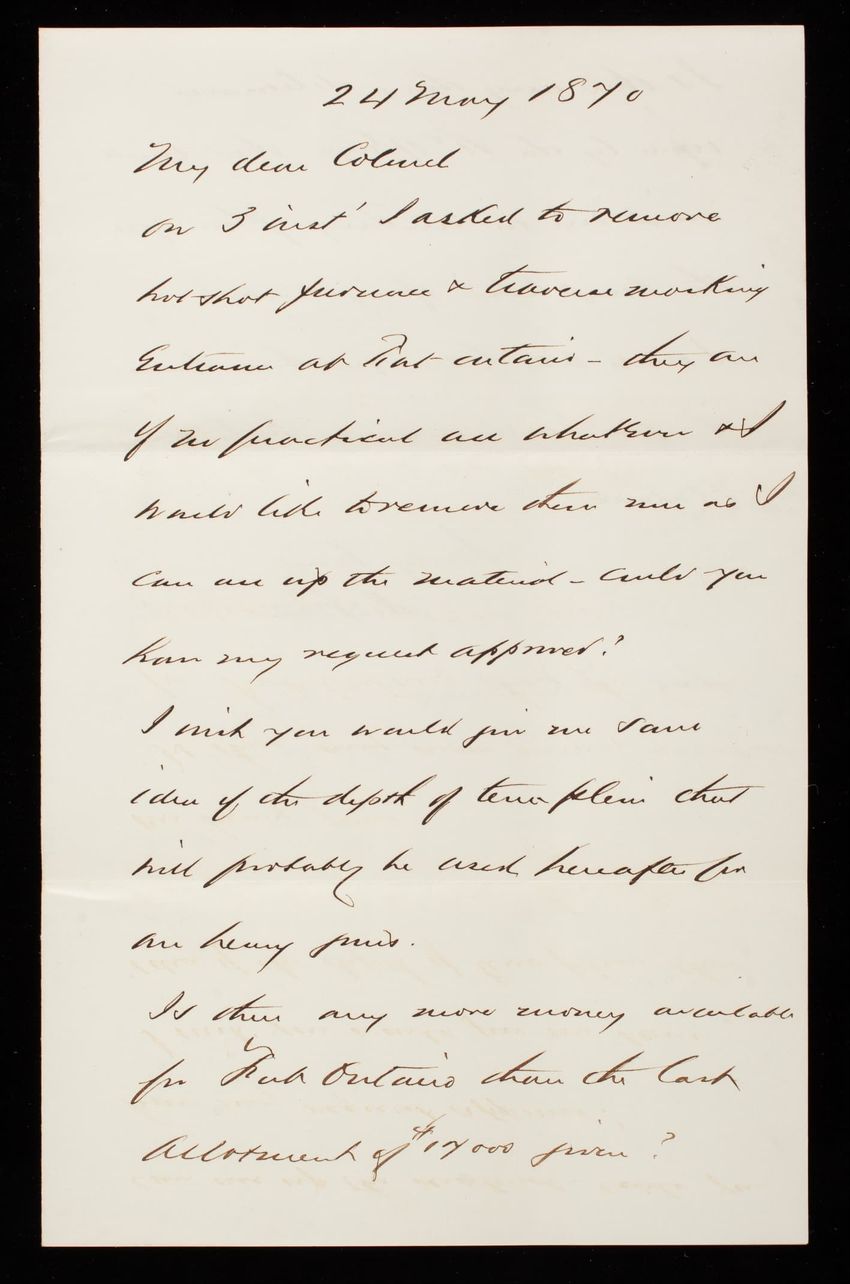 24 May 1870
My dear Colonel
on 3 inst' I asked to remove
hot shot furnace & traverse masking
Entrance at Fort Ontario - they are
of no practical use whatever & I
would like to remove them now as I
can use up the material - could you
have my request approved?
I wish you would give me some
idea of the depth of terre plein that
will probably be used hereafter for
our heavy guns.
Is there any more money available
for Fort Ontario than the last
Allotment of given?